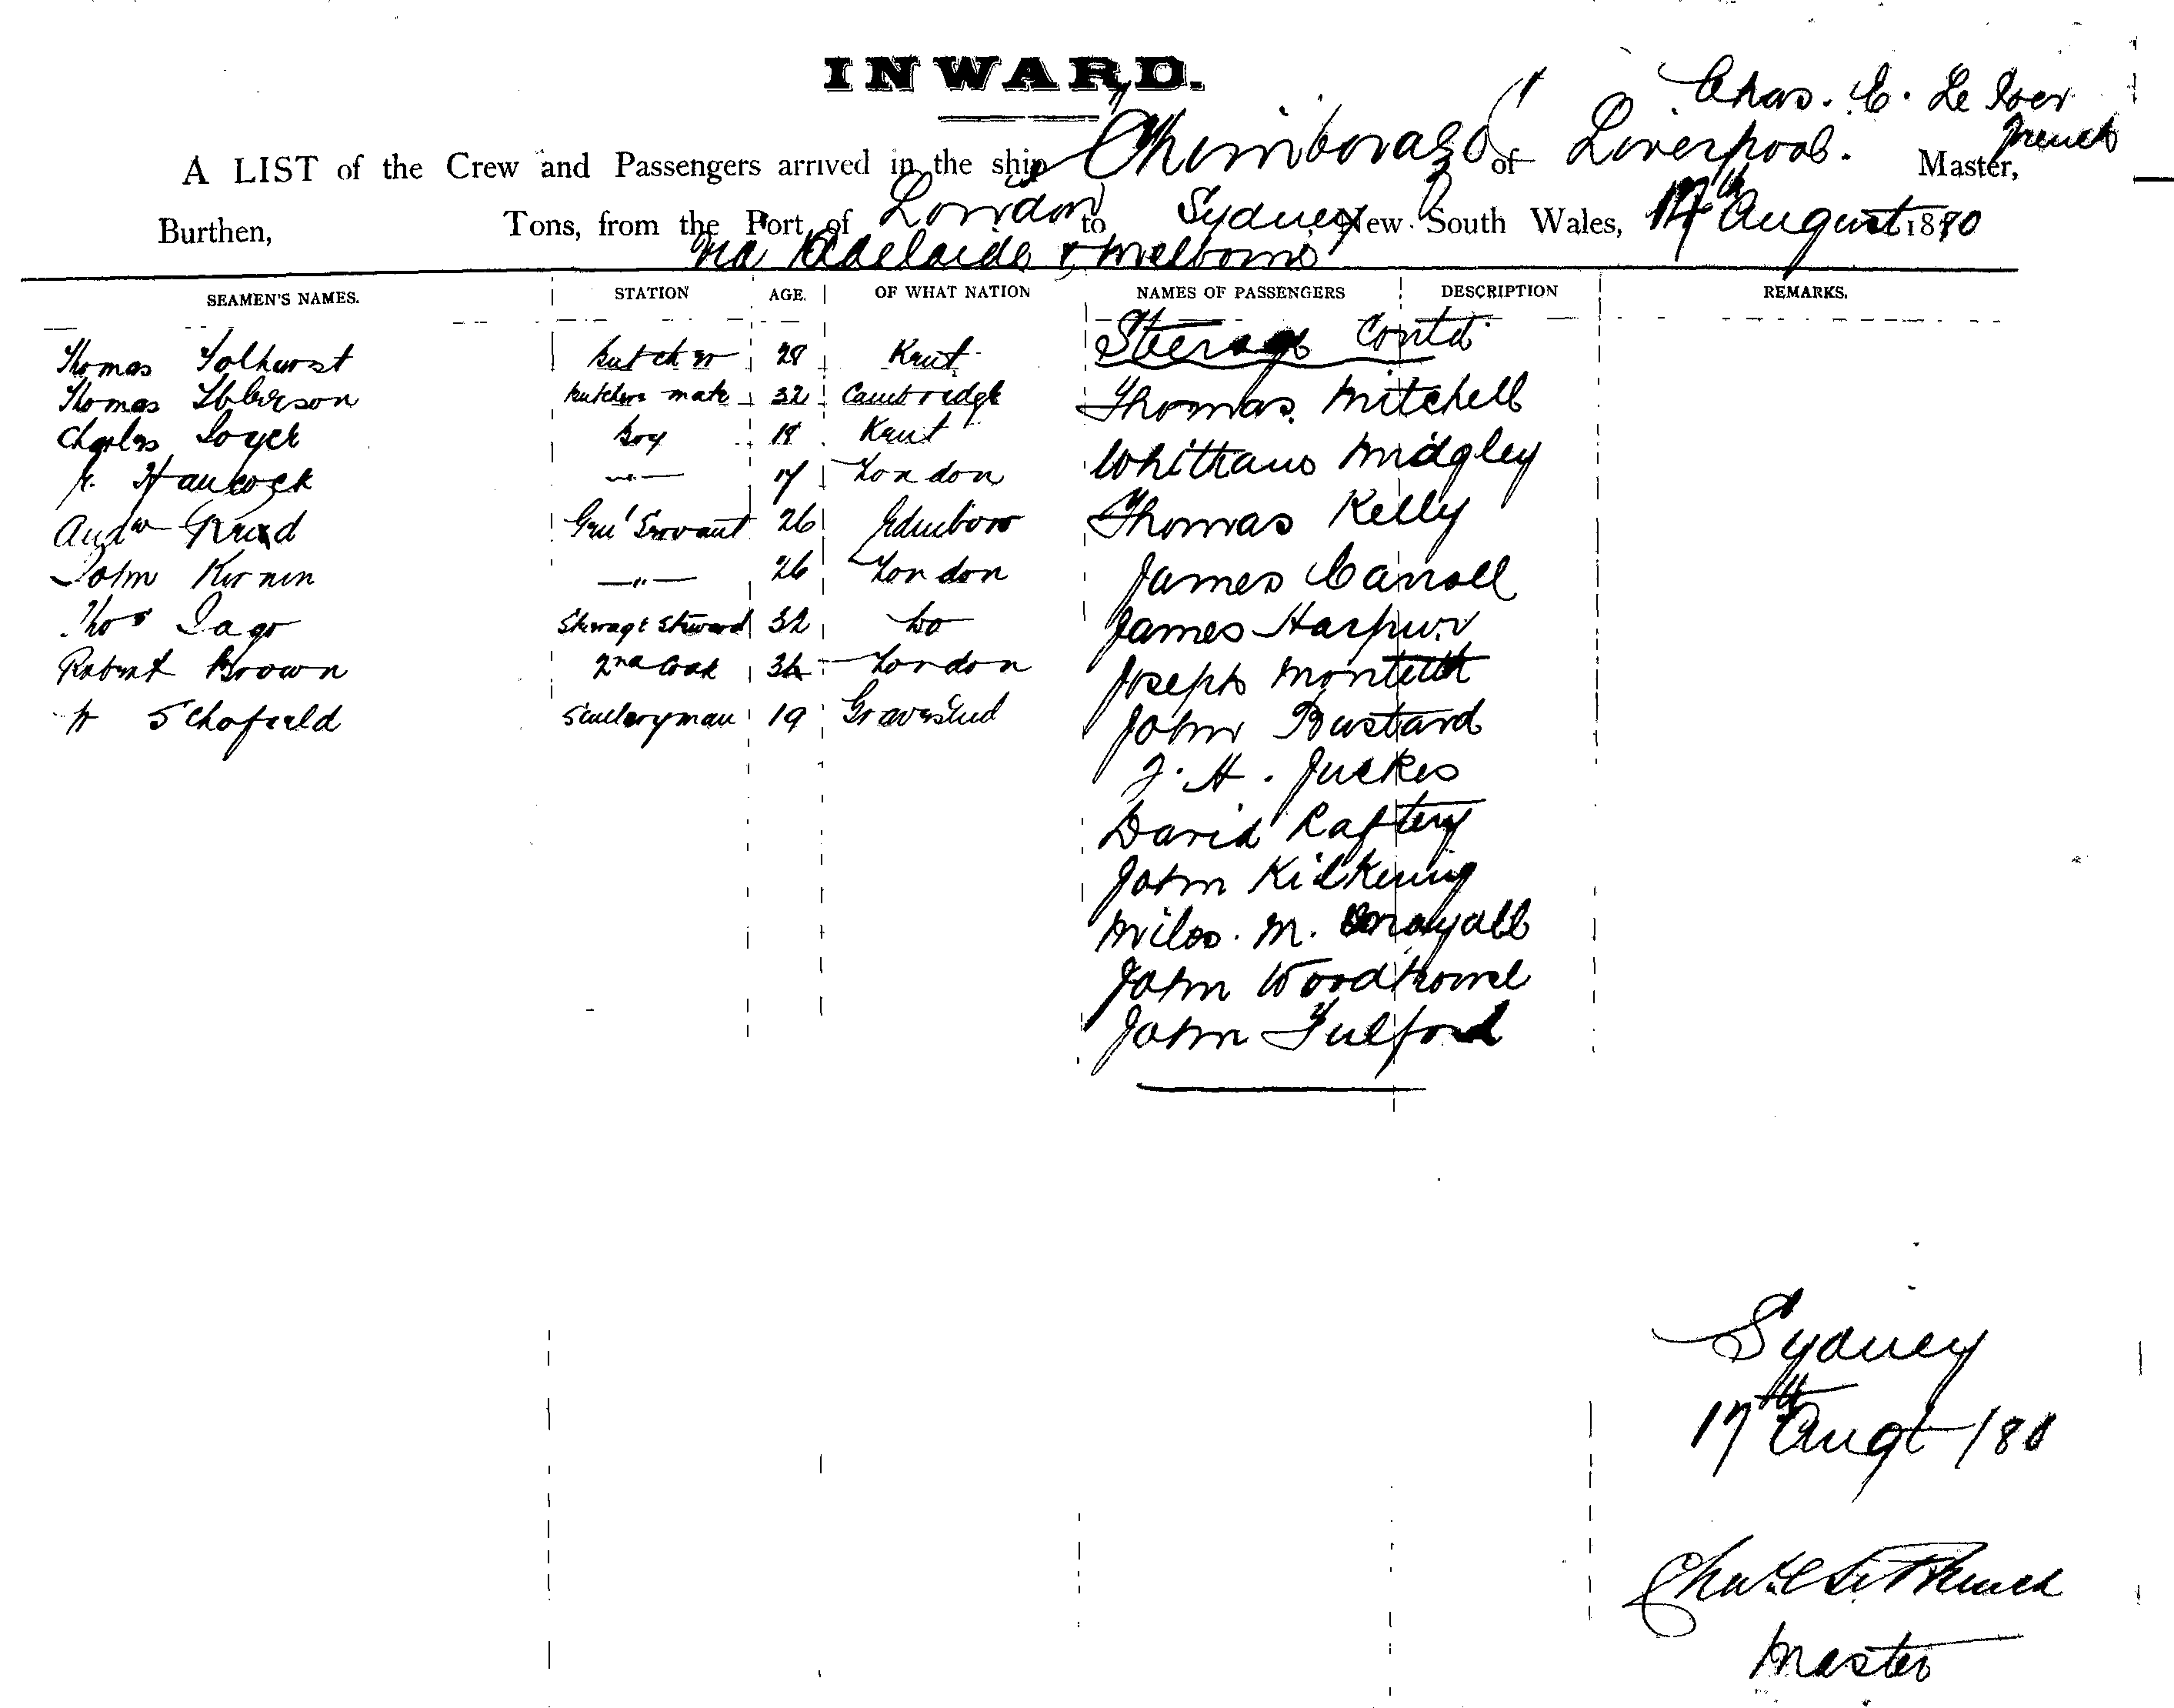 INWARD.
Chas. E. Le Poer
French
A LIST of the Crew and Passengers arrived in the ship "Chimborazo" of Liverpool. Master,
Burthen, Tons, from the Port of London to Sydney, New South Wales, 17th August 1880
via Adelaide & Melborne
SEAMEN'S NAMES. STATION AGE. OF WHAT NATION NAMES OF PASSENGERS DESCRIPTION REMARKS.
Steerage Contd.
Thomas Tolhurst butcher 28 Kent
Thomas Ibberson butchers mate 32 Cambridge Thomas Mitchell
Charles boy 18 Kent
Hancock —"— 17 London Midgley
Andw Genl Servant 26 Edinboro Thomas Kelly
John Kirnin —"— 26 London James Carroll
Thos Jago Steerage Steward 32 Do James Harpur
Robert Brown 2nd Cook London Joseph Monteith
H Schofield Sculleryman 19 Gravesend John Bustard
J. H. Juckes
David Raftery
John Kilkenny
Miles. M. Mayall
John Woodhouse
John Fulford
Sydney
17th Augt /80
Chas E Le P French
Master